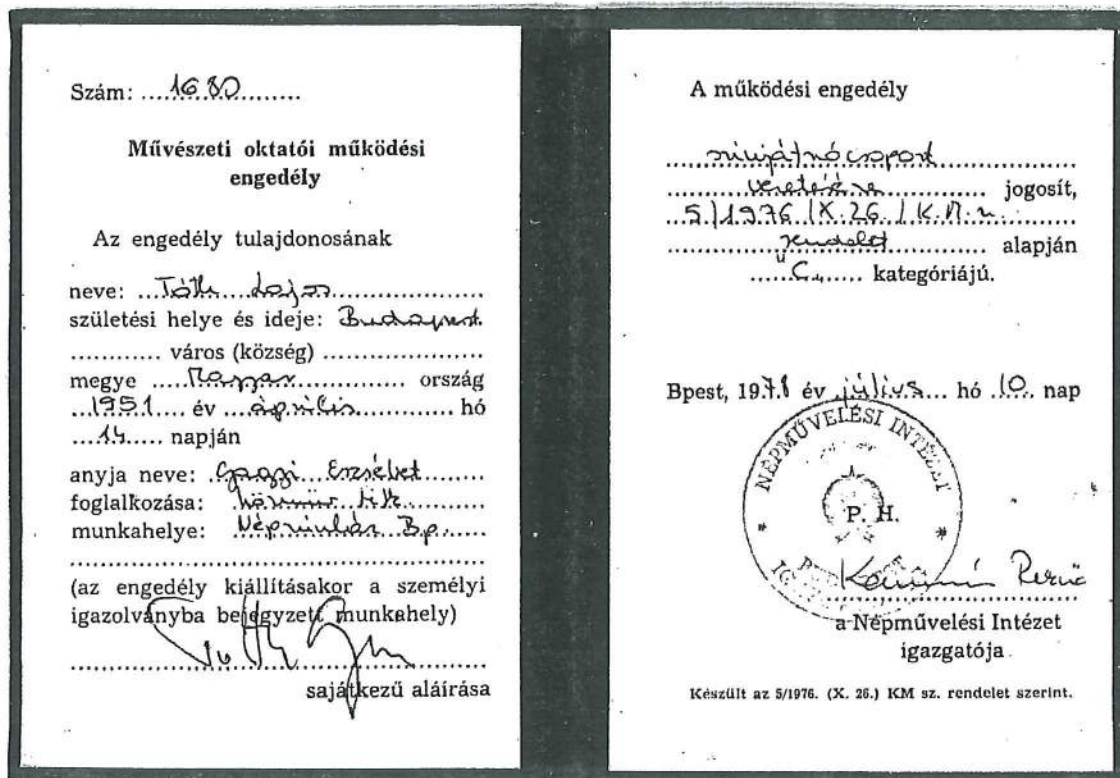 Szám: ....1680............
Művészeti oktatói működési
engedély
Az engedély tulajdonosának
neve: ...Tóth....Lajos...................
születési helye és ideje: Budapest.
............ város (község) .....................
megye .....Magyar................ ország
...1951.... év ...április............... hó
...14..... napján
anyja neve: ..Gyagyi Erzsébet.........
foglalkozása:
munkahelye: ...Népszínház Bp.....
(az engedély kiállításakor a személyi
igazolványba bejegyzett munkahely)
sajátkezű aláírása
A működési engedély
......színjátszócsoport....................
........vezetésére................. jogosít,
..5/1976./X.26./K.M.......
..........rendelet................. alapján
....."C"...... kategóriájú.
Bpest, 1978 év .július... hó .10. nap
NÉPMŰVELÉSI INTÉZET
P. H.
a Népművelési Intézet
igazgatója
Készült az 5/1976. (X. 26.) KM sz. rendelet szerint.